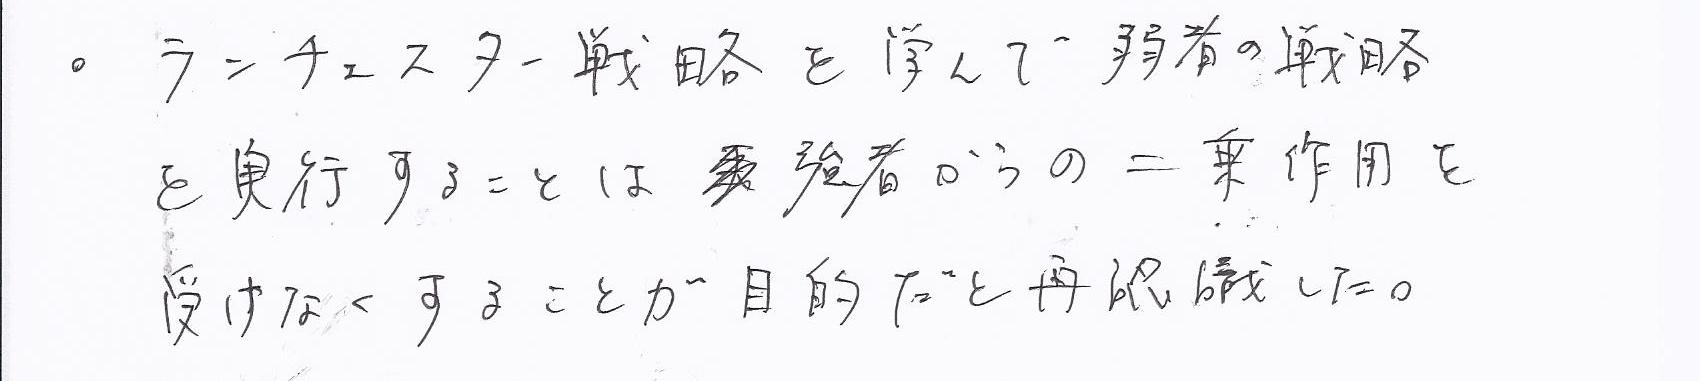 。ランチェスター戦略を学んで弱者の戦略
を実行することは強者からの二乗作用を
受けなくすることが目的だと再認識した。